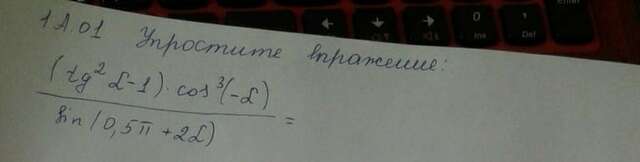 1A.01 Упростите выражение:
(tg² α-1)·cos³(-α)
sin(0,5π+2α) =
0
Ins
Del